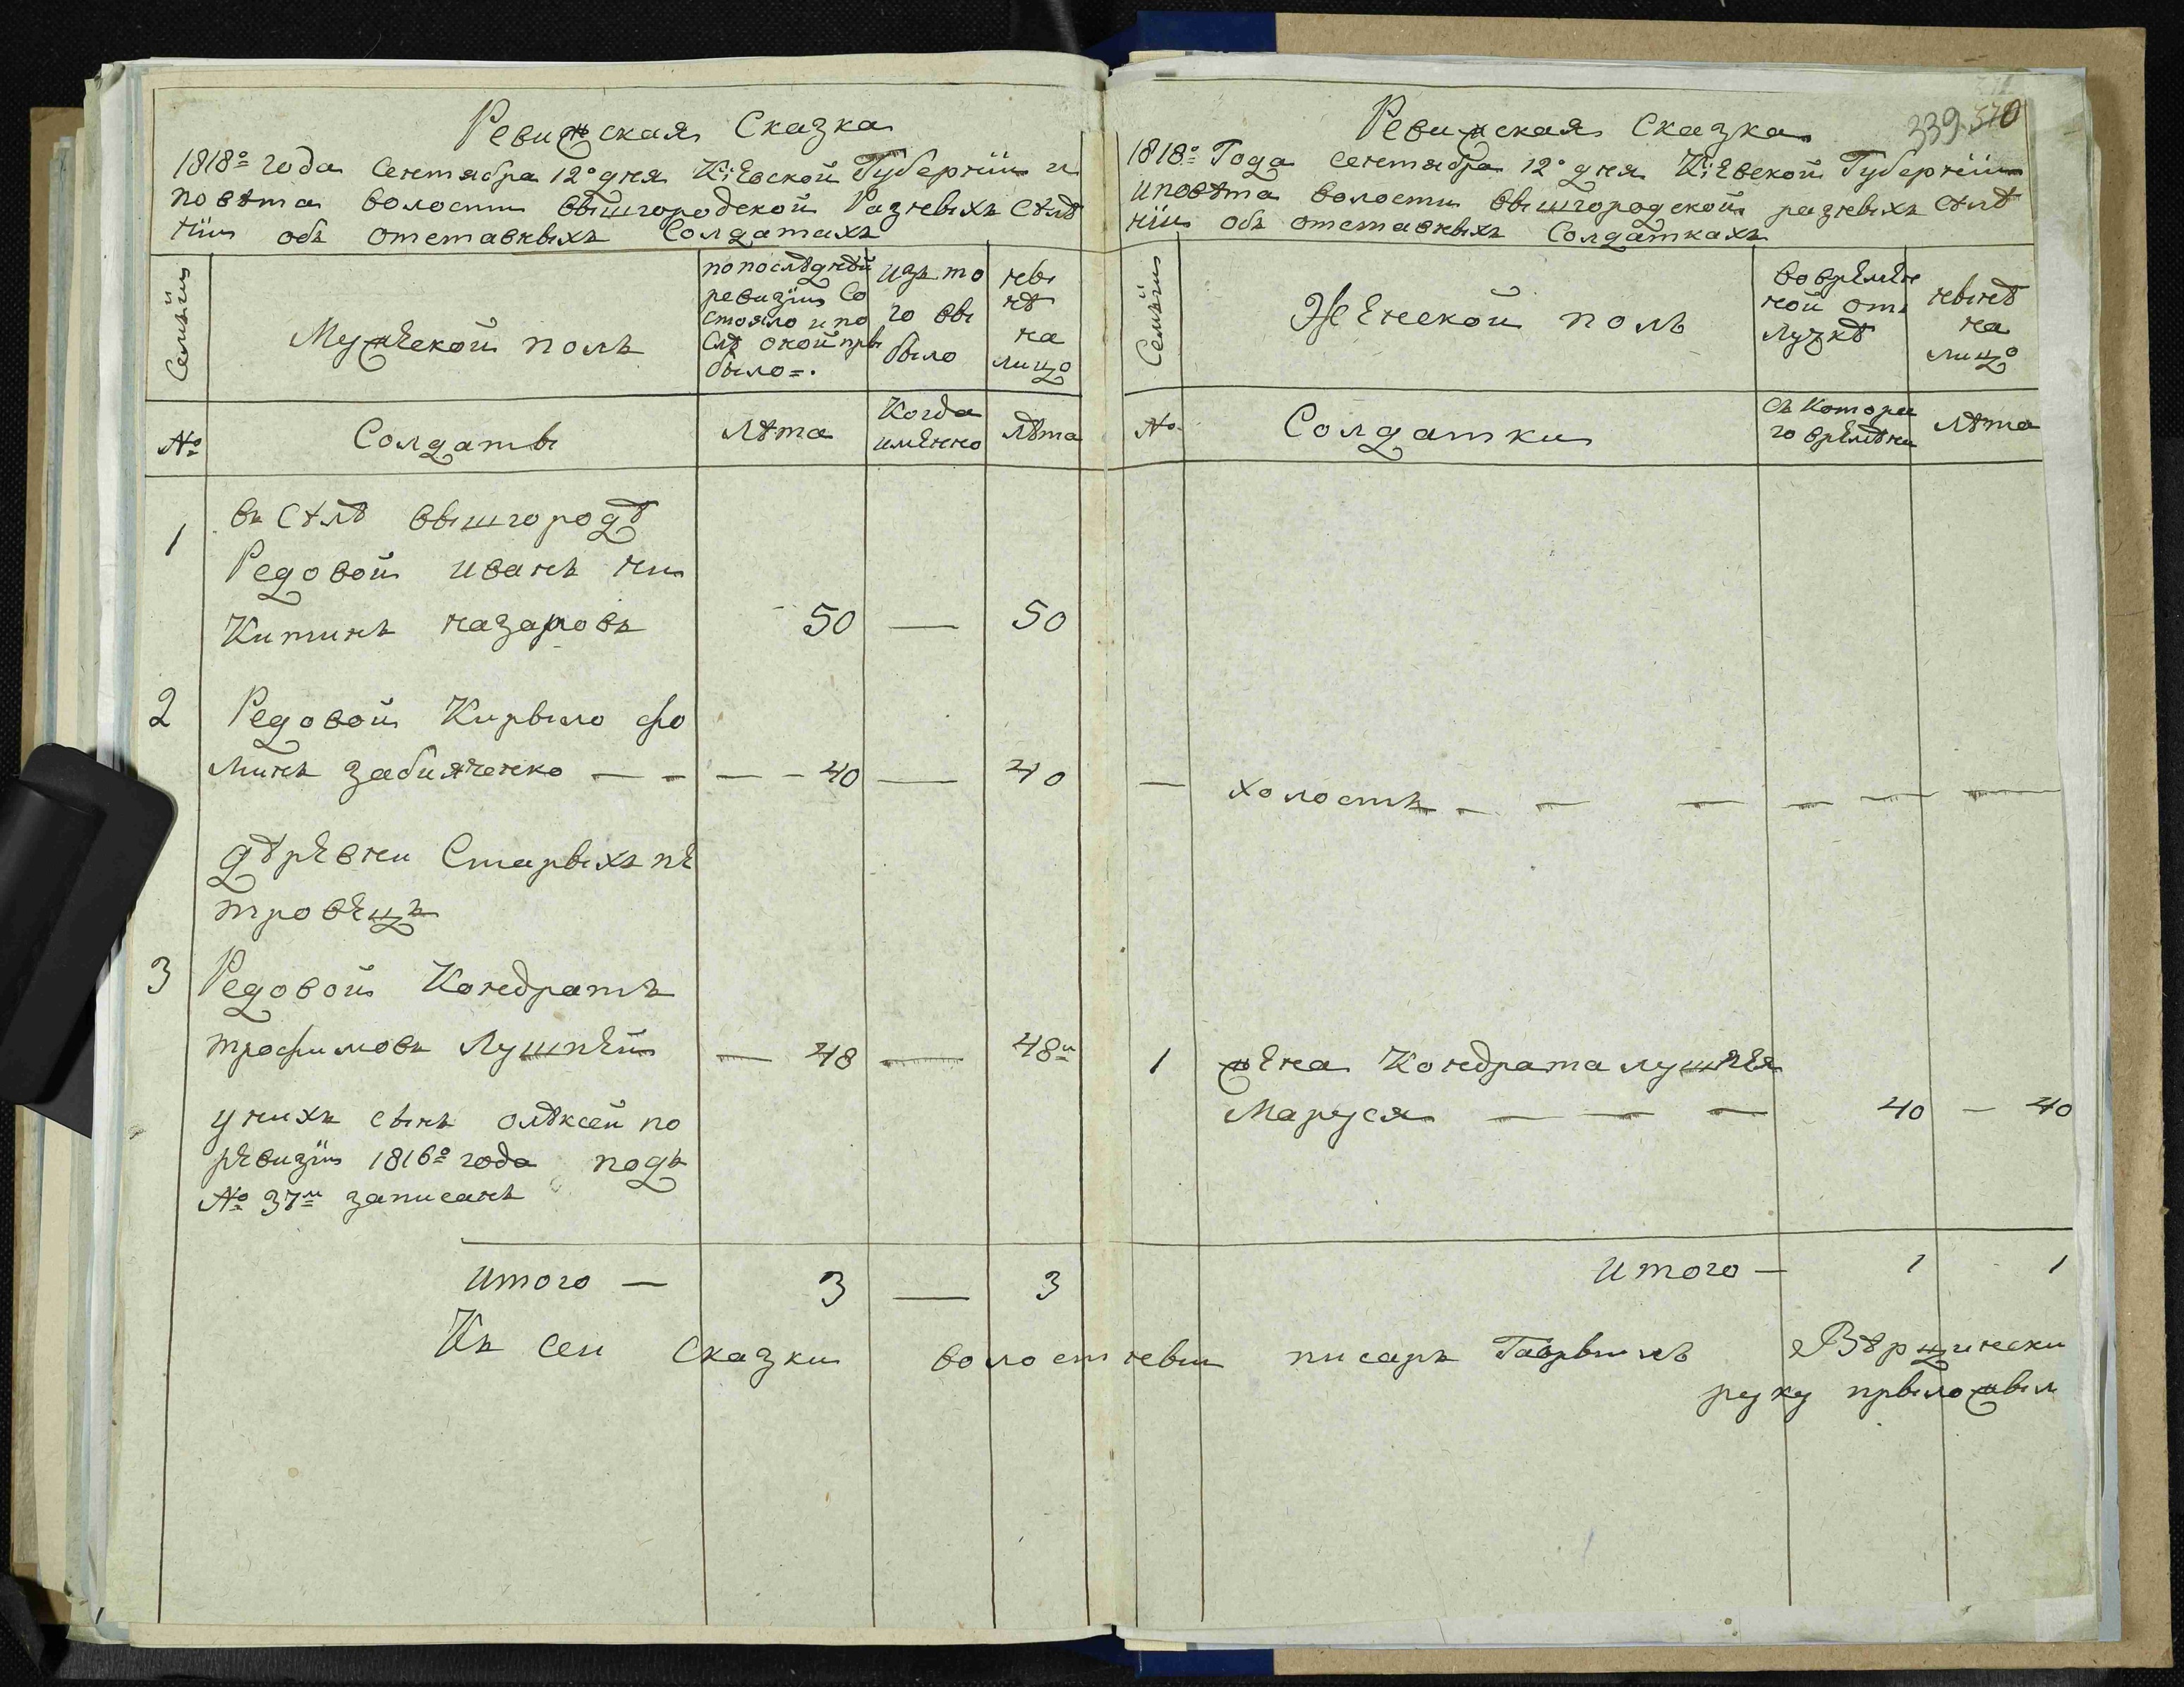 Ревижская Сказка
1818го года сентября 12го дня Кіевской Губерніи и
повѣта волости вышгородской Разныхъ сѣлѣ
ніи объ отставныхъ Солдатахъ
Семьи
Мужеской полъ
по послѣдней
ревизіи со
стояло и по
слѣ оной при
было
изъ то
го вы
было
ны
нѣ
на
лицо
№
Солдаты
Лѣта
Когда
имѣнно
лѣта
1
въ сѣлѣ вышгородѣ
Редовой иванъ ни
Китинъ назаровъ
50 — 50
2
Редовой Кирыло фо
минъ забияченко — — — — 40 — 40
дѣревни Старыхъ пе
тровецъ
3
Редовой Кондратъ
трофимовъ Лушпѣй — 48 — 48и
у нихъ сынъ олѣксей по
ревизіи 1816го года подъ
№ 37м записанъ
итого — 3 — 3
Ревижская Сказка
339 370
1818го Года сентября 12го дня Кіевской Губерніи
и повѣта волости вышгородской разныхъ сѣлѣ
ніи объ отставныхъ Солдаткахъ
Семьи
Женской полъ
во времен
ной от
лучкѣ
нынѣ
на
лицо
№
Солдатки
съ котора
го времѣни
лѣта
— холостъ — — — — — —
1
жена Кондрата лушпея
Маруся — — — 40 — 40
итого — 1 1
Къ сеи сказки волостныи писарь Гаврыилъ Вѣржински
руку прыложыл